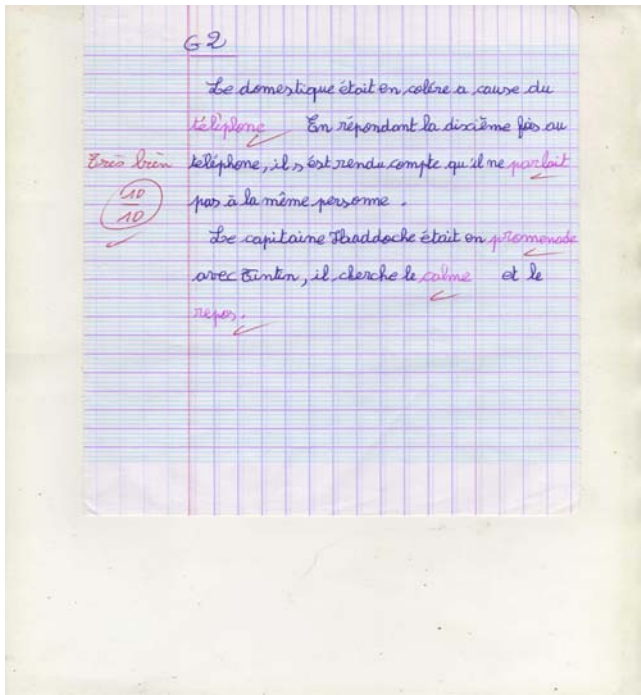 G2
Le domestique était en colère a cause du
téléphone En répondant la dixième fois au
Très bien
téléphone, il s'est rendu compte qu'il ne parlait
10
10
pas à la même personne.
Le capitaine Haddoche était en promenade
avec Tintin, il cherche le calme et le
repos.